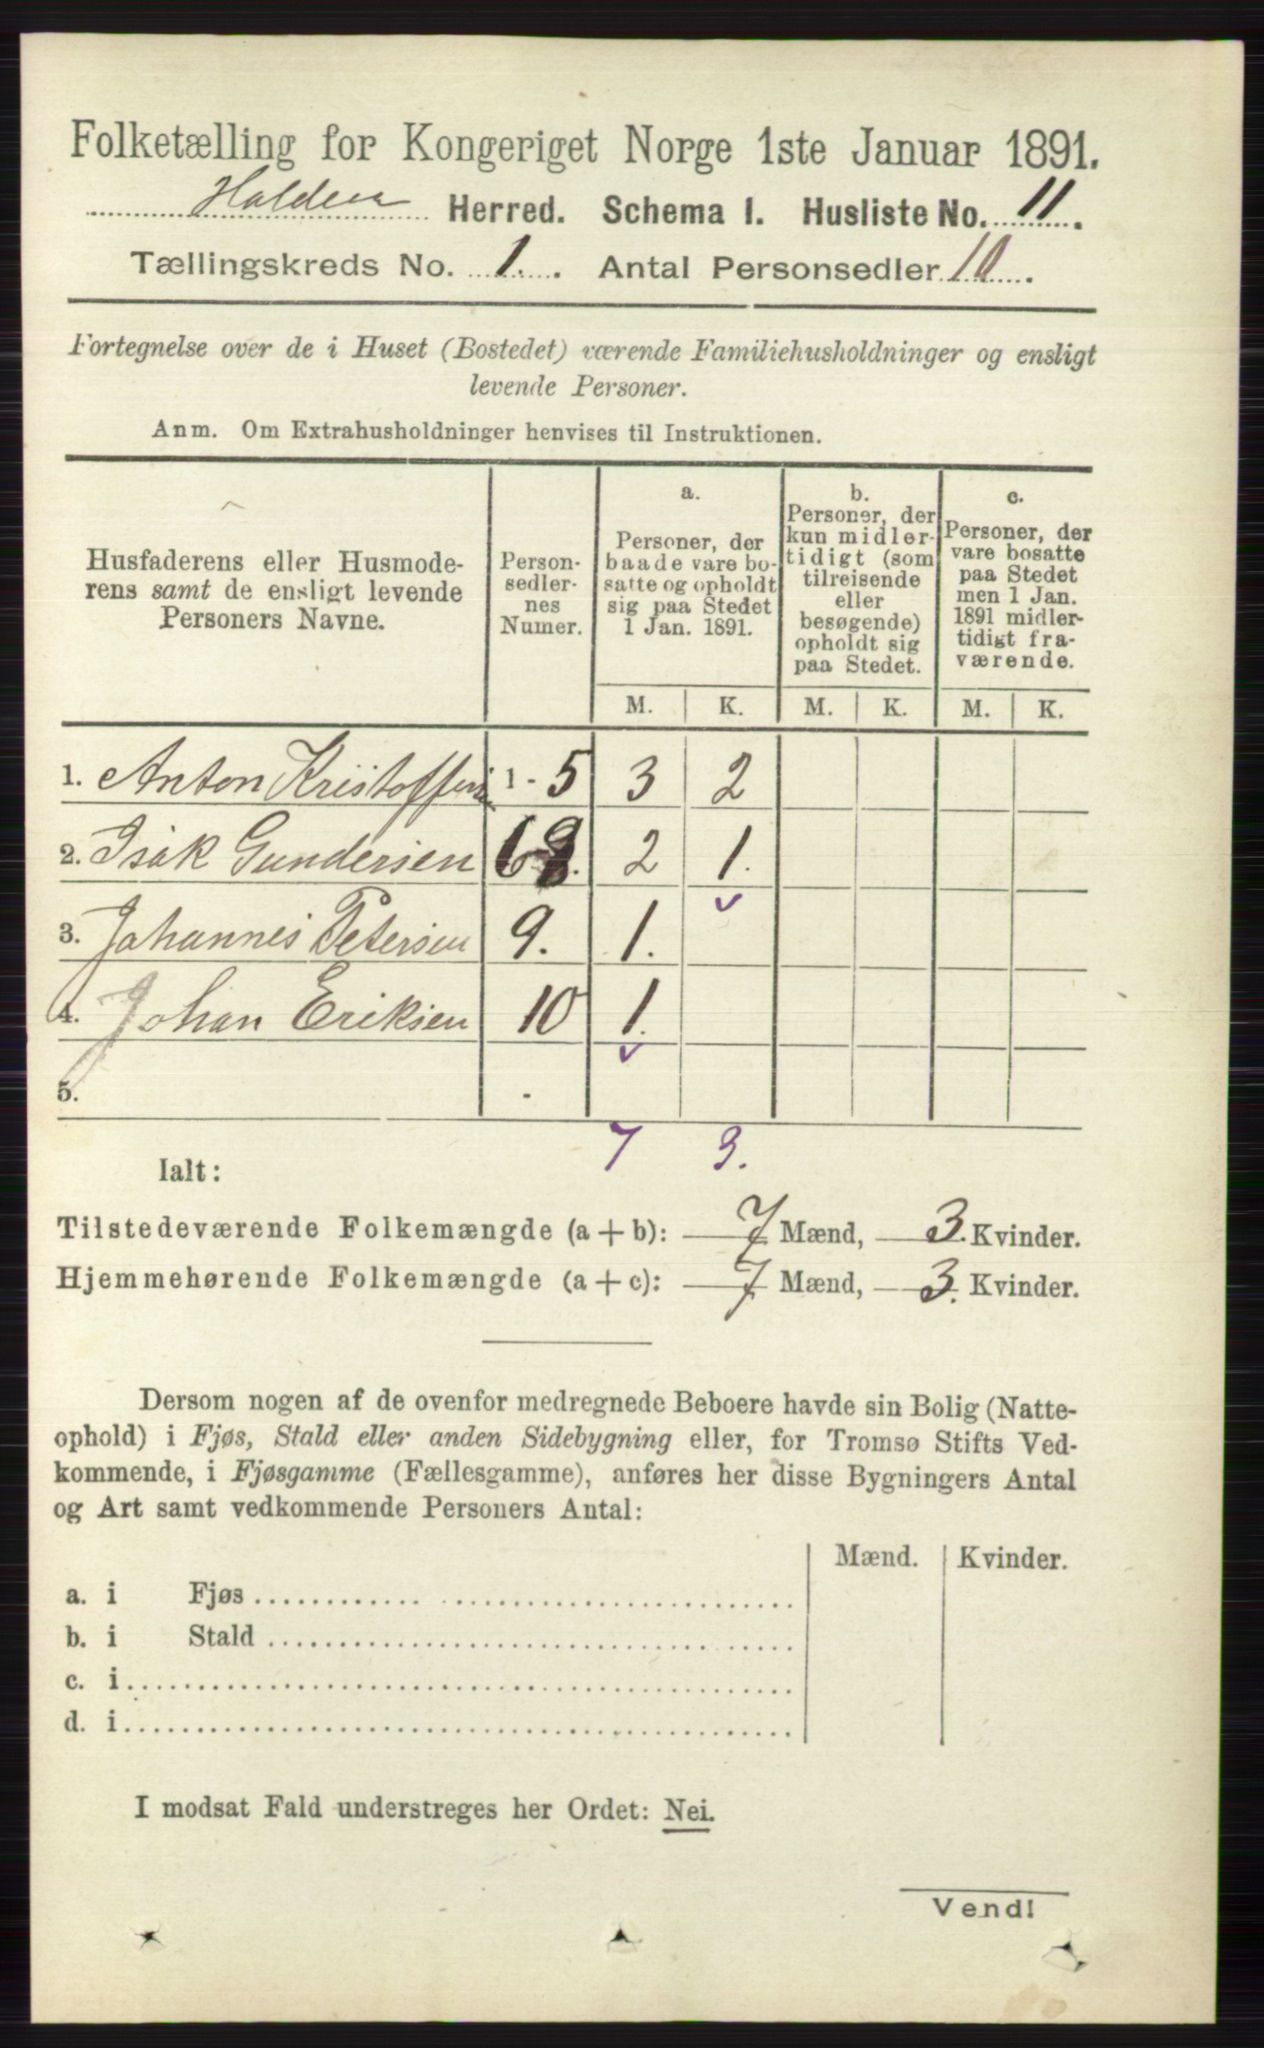 Folketælling for Kongeriget Norge 1ste Januar 1891.
Holden Herred. Schema 1. Husliste No. 11.
Tællingskreds No. 1. Antal Personsedler 10.
Fortegnelse over de i Huset (Bostedet) værende Familiehusholdninger og ensligt
levende Personer.
Anm. Om Extrahusholdninger henvises til Instruktionen.
Husfaderens eller Husmode-
rens samt de ensligt levende
Personers Navne.
Person-
sedler-
nes
Numer.
a.
Personer, der
baade vare bo-
satte og opholdt
sig paa Stedet
1 Jan. 1891.
b.
Personer, der
kun midler-
tidigt (som
tilreisende
eller
besøgende)
opholdt sig
paa Stedet.
c.
Personer, der
vare bosatte
paa Stedet
men 1 Jan.
1891 midler-
tidigt fra-
værende.
M. K. M. K. M. K.
1. Anton Kristoffersen 1 - 5 3 2
2. Isak Gundersen 6-8. 2 1.
3. Johannes Petersen 9. 1.
4. Johan Eriksen 10 1.
5. -
7 3.
Ialt:
Tilstedeværende Folkemængde (a + b): 7 Mænd, 3. Kvinder.
Hjemmehørende Folkemængde (a + c): 7 Mænd, 3. Kvinder.
Dersom nogen af de ovenfor medregnede Beboere havde sin Bolig (Natte-
ophold) i Fjøs, Stald eller anden Sidebygning eller, for Tromsø Stifts Ved-
kommende, i Fjøsgamme (Fællesgamme), anføres her disse Bygningers Antal
og Art samt vedkommende Personers Antal:
Mænd. Kvinder.
a. i Fjøs
b. i Stald
c. i
d. i
I modsat Fald understreges her Ordet: Nei.
Vend!